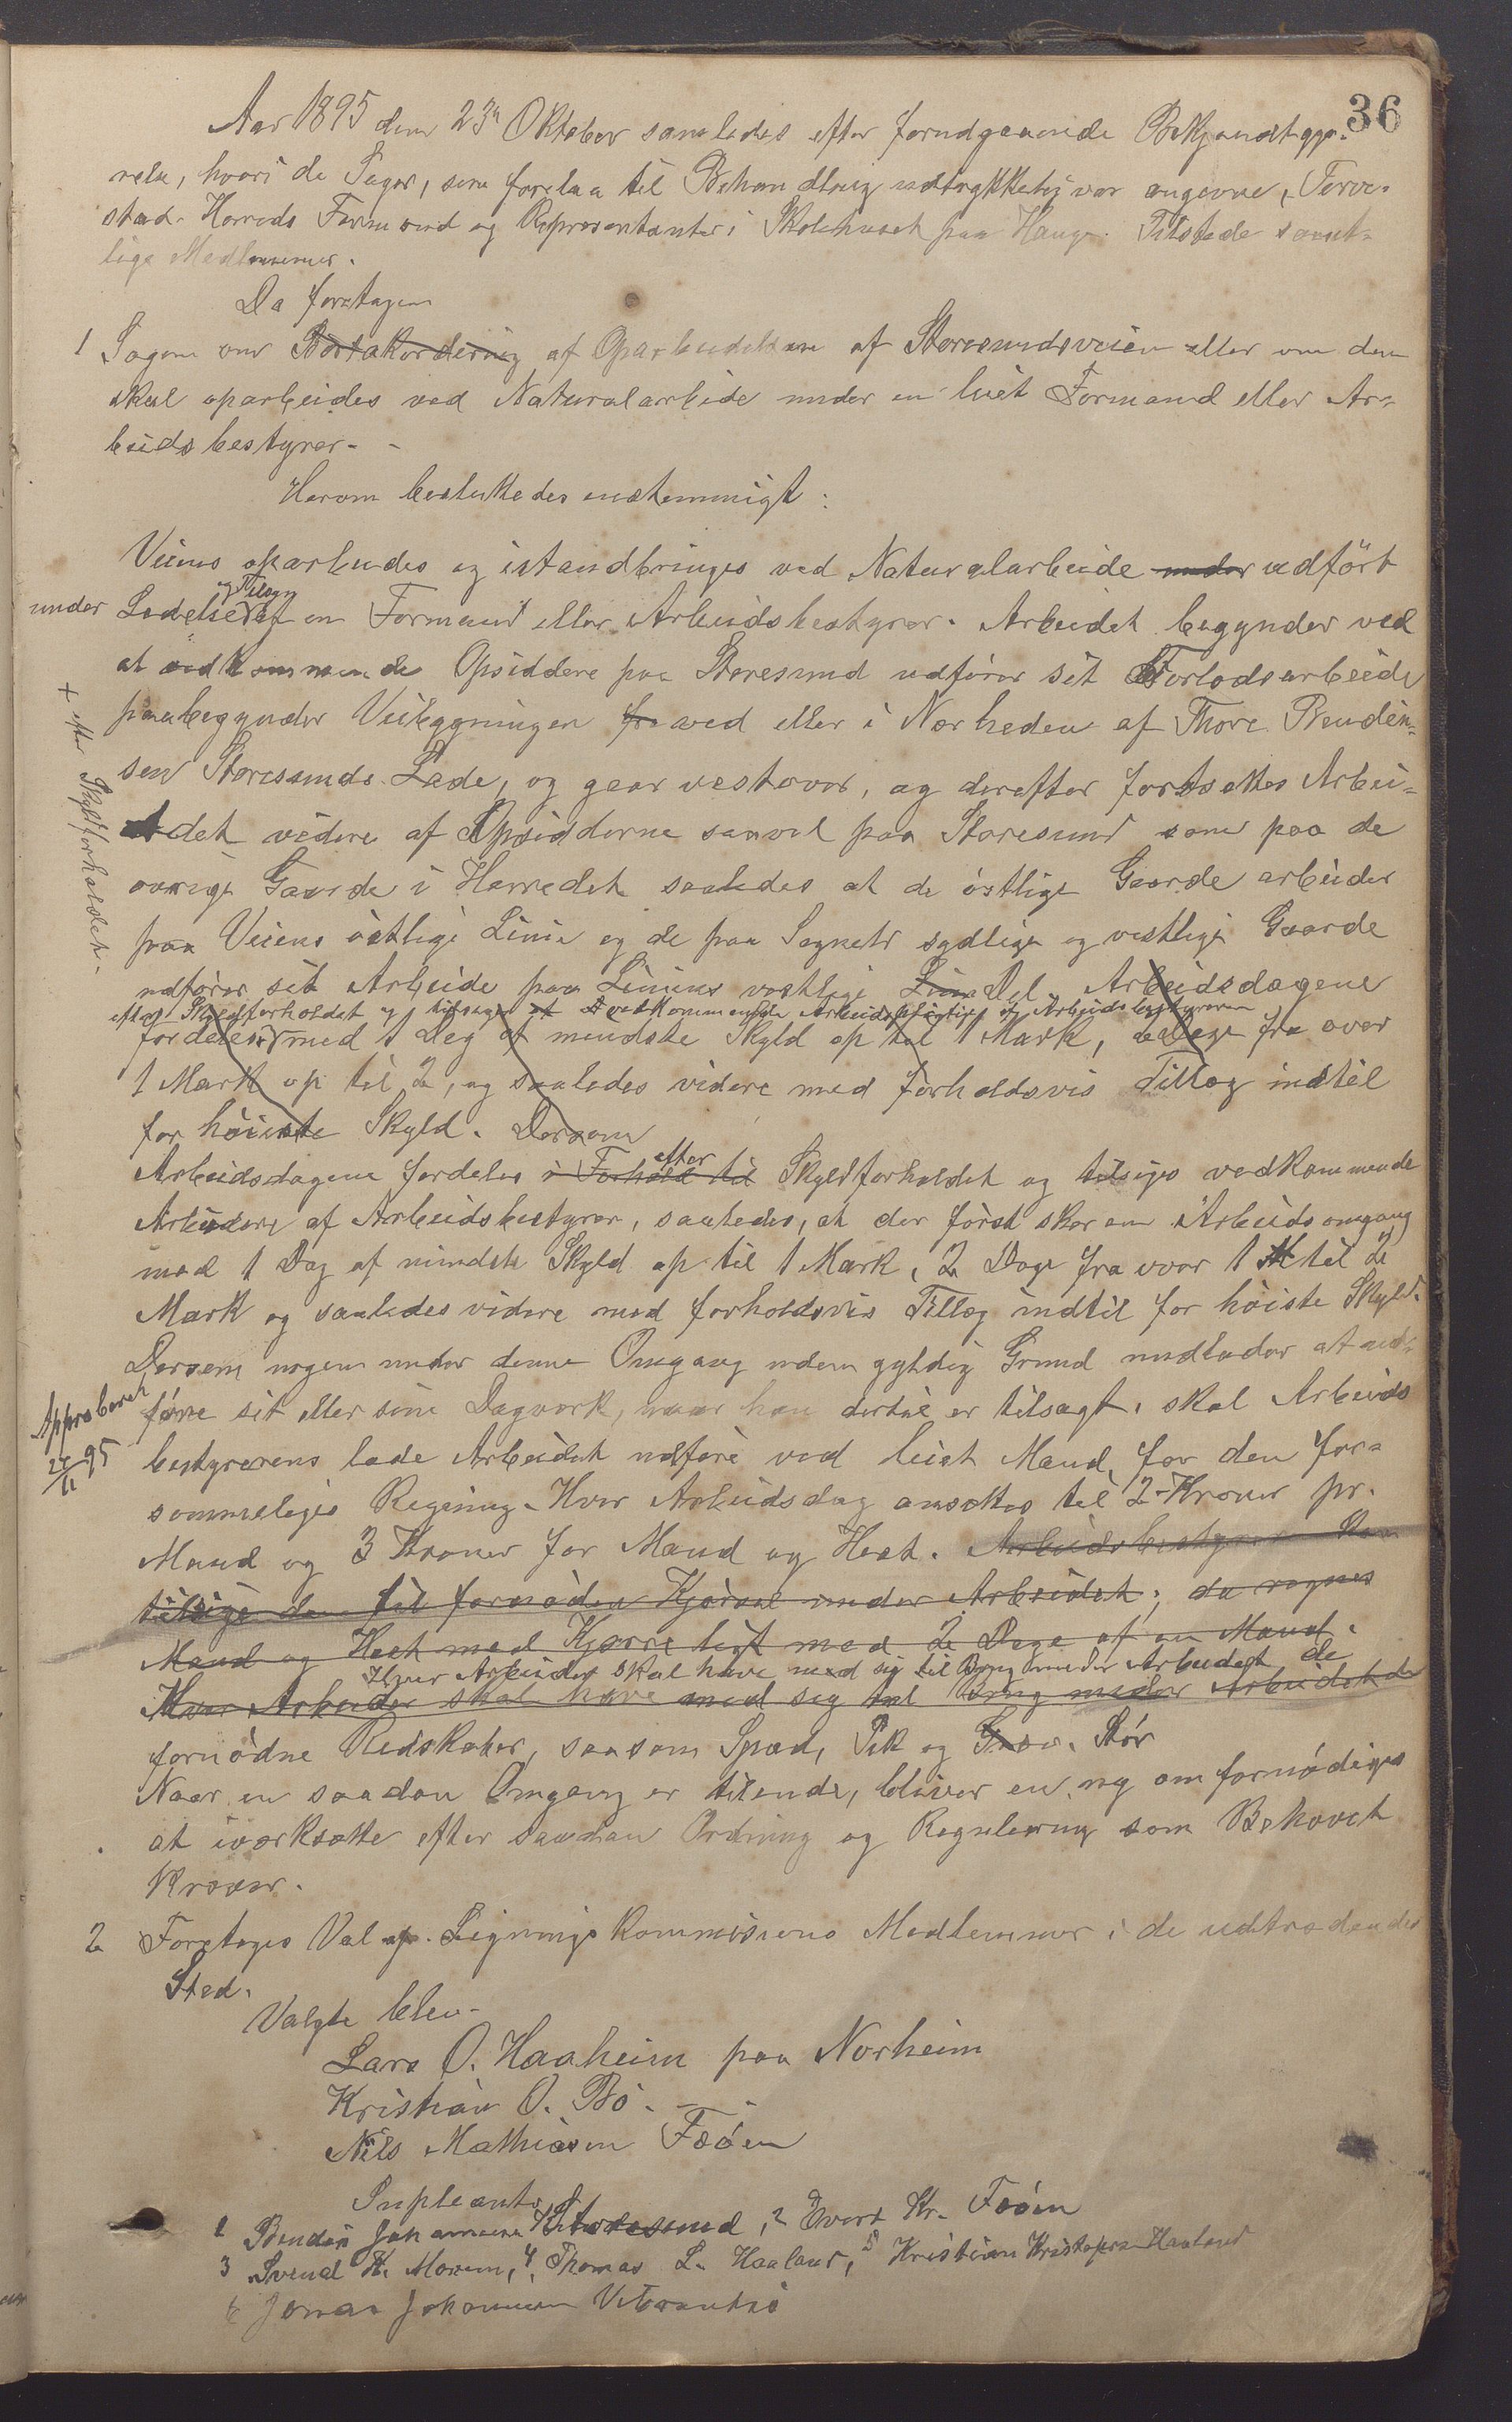 36
Aar 1895 den 23n Oktober samledes efter forudgaaende Bekjendtgjø-
relse, hvori de Sager, som forelaa til Behandling udtrykkelig var angivne, Torve-
stad Herreds Formænd og Repræsentanter i Skolehuset paa Hauge. Tilstede samt-
lige Medlemmer.
Da foretagen
1 Sagen om Bortakordering af Oparbeidelsen af Storesundsveien eller om den
skal oparbeides ved Naturalarbeide under en leiet Formand eller Ar-
beidsbestyrer. -
Herom besluttedes enstemmigt:
Veiens oparbeides og istandbringes ved Naturalarbeide under udført
og Tilsyn
under Ledelse af en Formand eller Arbeidsbestyrer. Arbeidet begynder ved
at vedkommende Opsiddere paa Storesund udfører sit Forlodsarbeide
paabegynder Veibygningen fra ved eller i Nærheden af Thore Bendik-
sen Storesunds Lade, og gaar vestover, og derefter fortsættes Arbei-
+ efter Skyldforholdet.
det videre af Opsidderne saavel paa Storesund som paa de
øvrige Gaarde i Herredet saaledes at de østlige Gaarde arbeider
paa Veiens østlige Linie og de paa Sognets sydlige og vestlige Gaarde
udfører sit Arbeide paa Liniens vestlige Linie Del. Arbeidsdagene
efter Skyldforholdet og tilsiges vedkommende Arbeidspligtige af Arbeidsbestyreren
fordeles med 1 Dag af mindste Skyld op til 1 Mark, 2 Dage fra over
1 Mark op til 2, og saaledes videre med forholdsvis Tillæg indtil
for høieste Skyld. Dersom
efter
Arbeidsdagene fordeles i Forhold til Skyldforholdet og tilsiges vedkommende
Arbeidere af Arbeidsbestyrer, saaledes, at der først sker en Arbeidsomgang
med 1 Dag af mindste Skyld op til 1 Mark, 2 Dage fra over 1 M til 2
Mark og saaledes videre med forholdsvis Tillæg indtil for høiste Skyld.
Dersom nogen under denne Omgang uden gyldig Grund undlader at ud-
Approberet 27/11 95
føre sit eller sine Dagverk, naar han dertil er tilsagt, skal Arbeids
bestyrerens lade Arbeidet udføre ved leiet Mand, for den for-
sømmeliges Regning. Hver Arbeidsdag ansættes til 2 Kroner pr.
Mand og 3 Kroner for Mand og Hest. Arbeidsbestyreren kan
tilsige den til fornøden Kjørsel under Arbeidet; da regnes
Mand og Hest med Kjærre ligt med 2 Dage af en Mand.
Hver Arbeider skal have med sig til Brug under Arbeidet de
Hver Arbeider skal have med sig til Brug under Arbeidet de
fornødne Redskaber, saasom Spad, Pik og Stør
Naar en saadan Omgang er tilende, bliver en ny om fornødiges
at iværksætte efter saadan Ordning og Regulering som Behovet
kræver.
2 Foretoges Val af Ligningskommisions Medlemmer i de udtrædendes
Sted.
Valgte blev
Lars O. Haaheim paa Norheim
Kristian O. Bø. - -
Nils Mathiasen Fæøen
Supleanter
1 Bendix Johannesen Storesund, 2 Evert Kr. Fæøen
3 Svend H. , 4, Thomas L. Haaland, 5 Kristian Kristofersen Haaland
6 Jonas Johannesen Vibrandsø